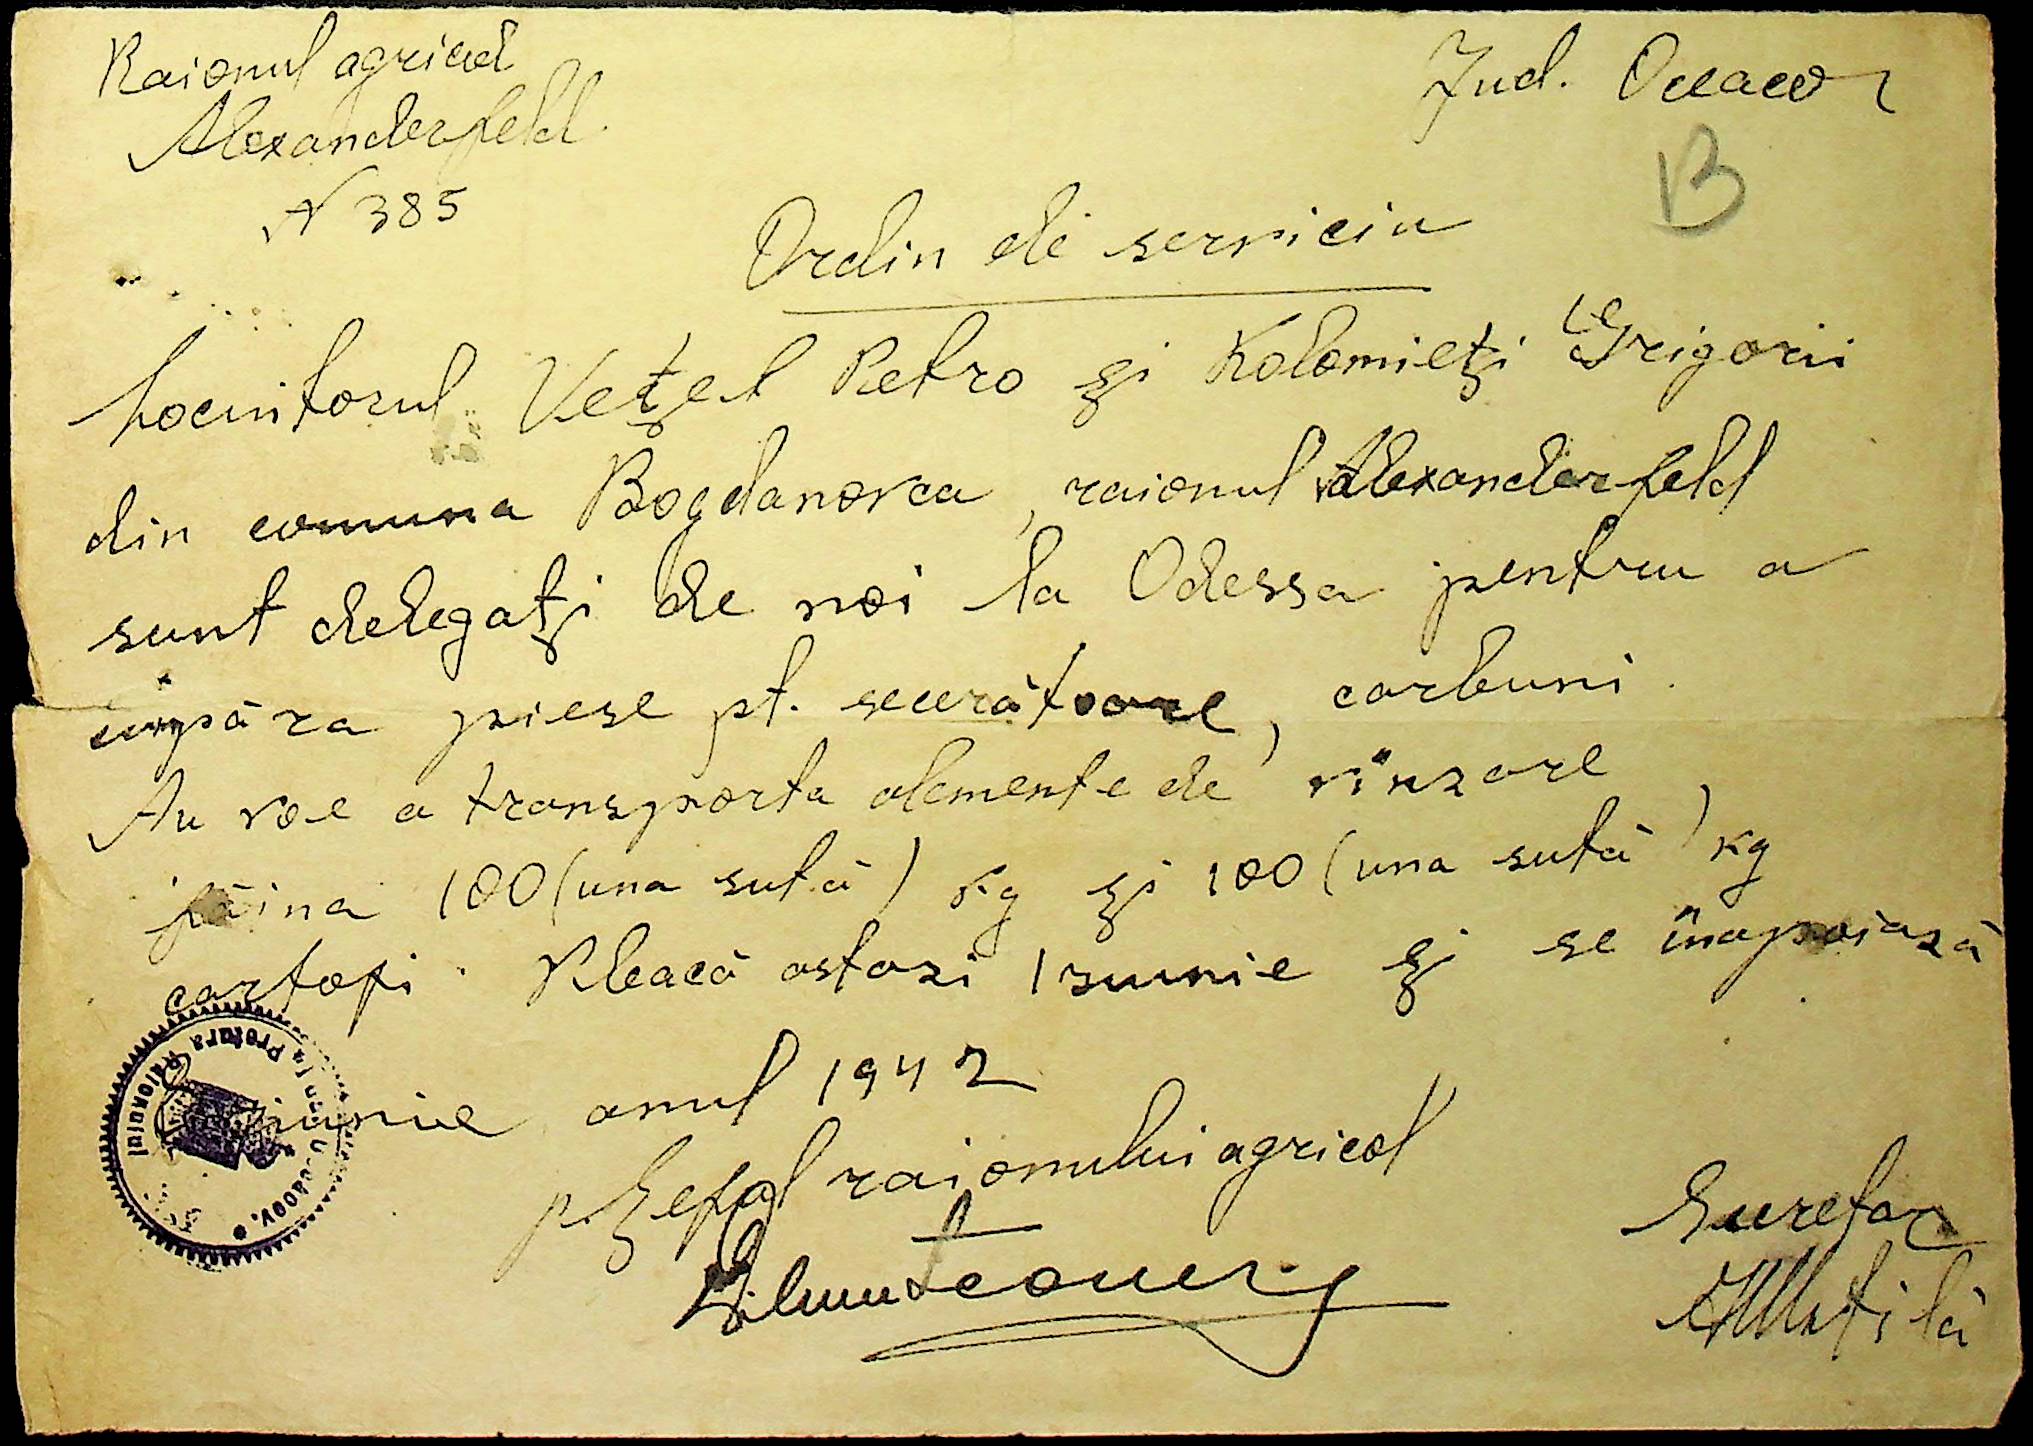 Raionul agricol
Alexanderfeld
N 385
Jud. Oceacov
B
Ordin de serviciu
Locuitorul Vețel Petro și Kolomieți Grigorii
din comuna Bogdanovca, raionul Alexanderfeld
sunt delegați de noi la Odessa pentru a
cumpăra piese pt. secerătoare, carbuni.
Au voe a transporta alemente de vînzare
făina 100 (una sută) kg și 100 (una sută) kg
cartofi. Pleacă astazi 1 iunie și se înapoiază
iunie anul 1942
p. Șeful raionului agricol
Secretar
Raionului
Pretura
Oceacov.